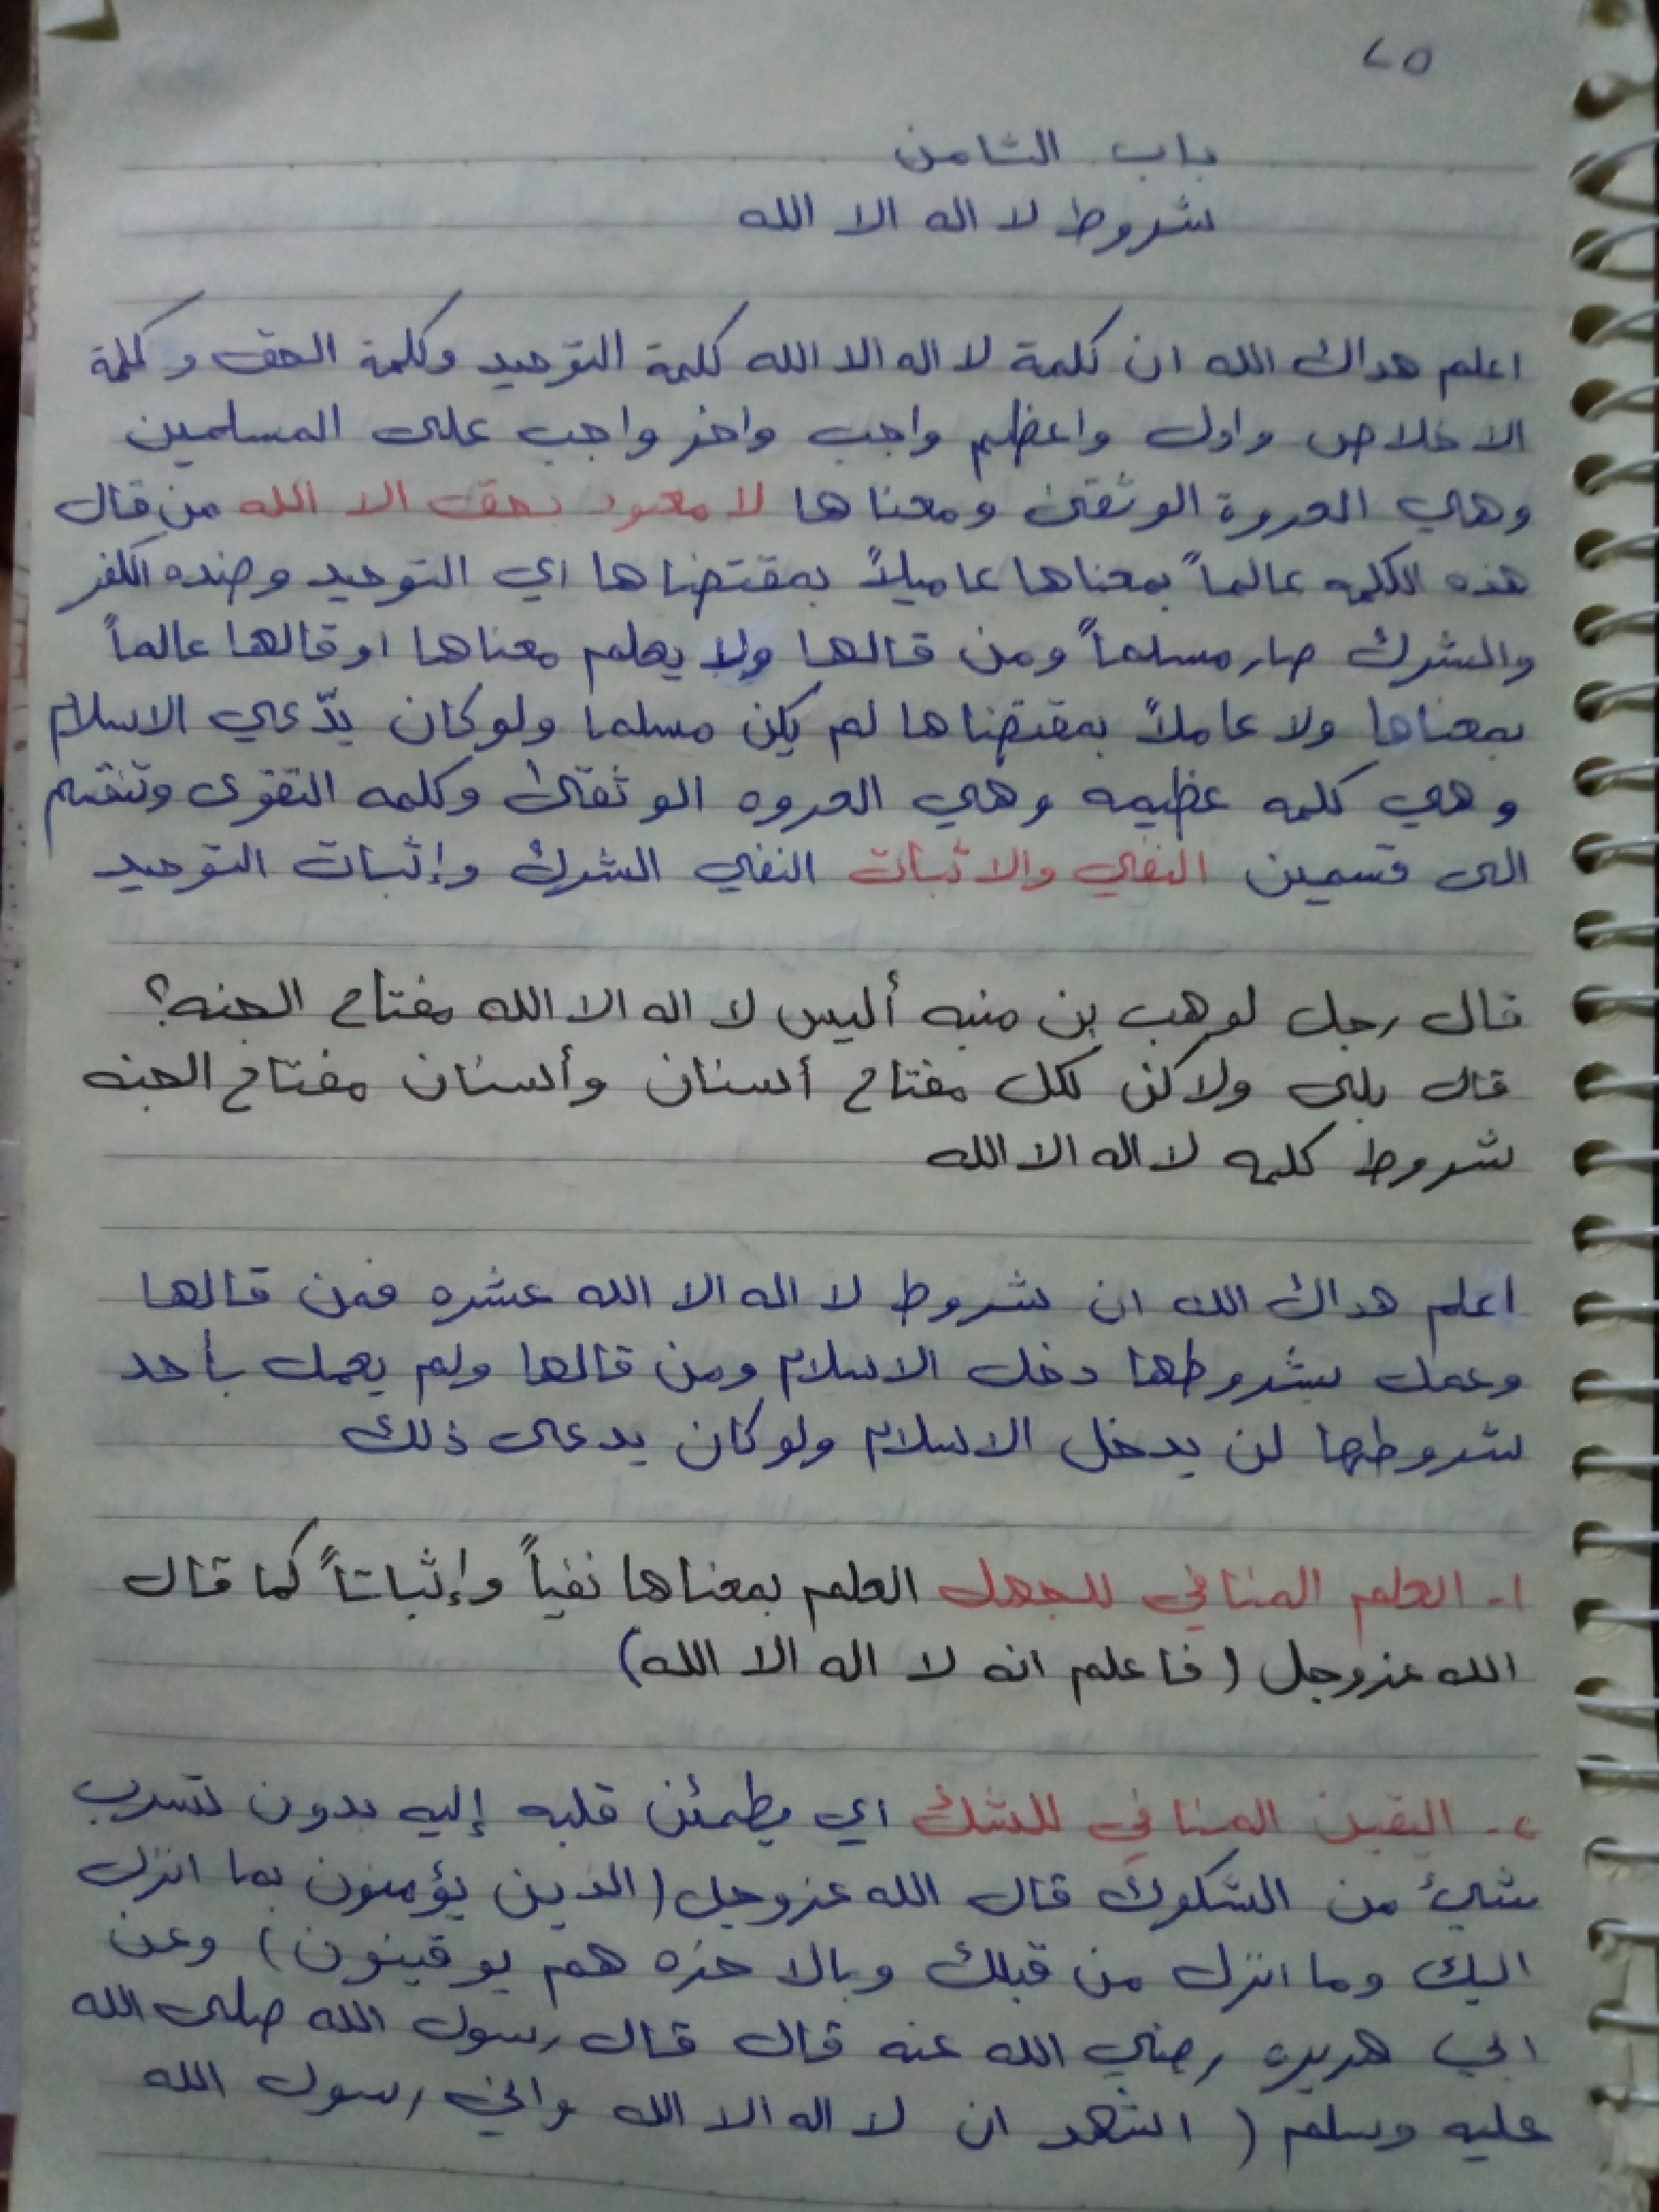 ٢٥
باب الثامن
شروط لا اله الا الله
اعلم هداك الله ان كلمة لا اله الا الله كلمة التوحيد وكلمة الحق وكلمة
الاخلاص واول واعظم واجب واخر واجب على المسلمين
وهي العروة الوثقى ومعناها لا معبود بحق الا الله من قال
هذه الكلمه عالماً بمعناها عاميلاً بمقتضاها اي التوحيد وضده الكفر
والشرك صار مسلماً ومن قالها ولا يعلم معناها او قالها عالماً
بمعناها ولا عاملاً بمقتضاها لم يكن مسلما ولو كان يدّعي الاسلام
وهي كلمه عظيمه وهي العروه الوثقى وكلمه التقوى وتنقسم
الى قسمين النفي والاثبات النفي الشرك وإثبات التوحيد
قال رجل لوهب بن منبه أليس لا اله الا الله مفتاح الجنه؟
قال بلى ولاكن لكل مفتاح أسنان وأسنان مفتاح الجنه
شروط كلمه لا اله الا الله
اعلم هداك الله ان شروط لا اله الا الله عشره فمن قالها
وعمل بشروطها دخل الاسلام ومن قالها ولم يعمل بأحد
شروطها لن يدخل الاسلام ولو كان يدعى ذلك
١- العلم المنافي للجهل العلم بمعناها نفياً وإثباتاً كما قال
الله عزوجل (فاعلم انه لا اله الا الله)
٢- اليقين المنافي للشك اي يطمئن قلبه إليه بدون تسرب
شيئ من الشكوك قال الله عزوجل (الذين يؤمنون بما انزل
اليك وما انزل من قبلك وبالاخره هم يوقينون) وعن
ابي هريره رضي الله عنه قال قال رسول الله صلى الله
عليه وسلم ( اشهد ان لا اله الا الله واني رسول الله